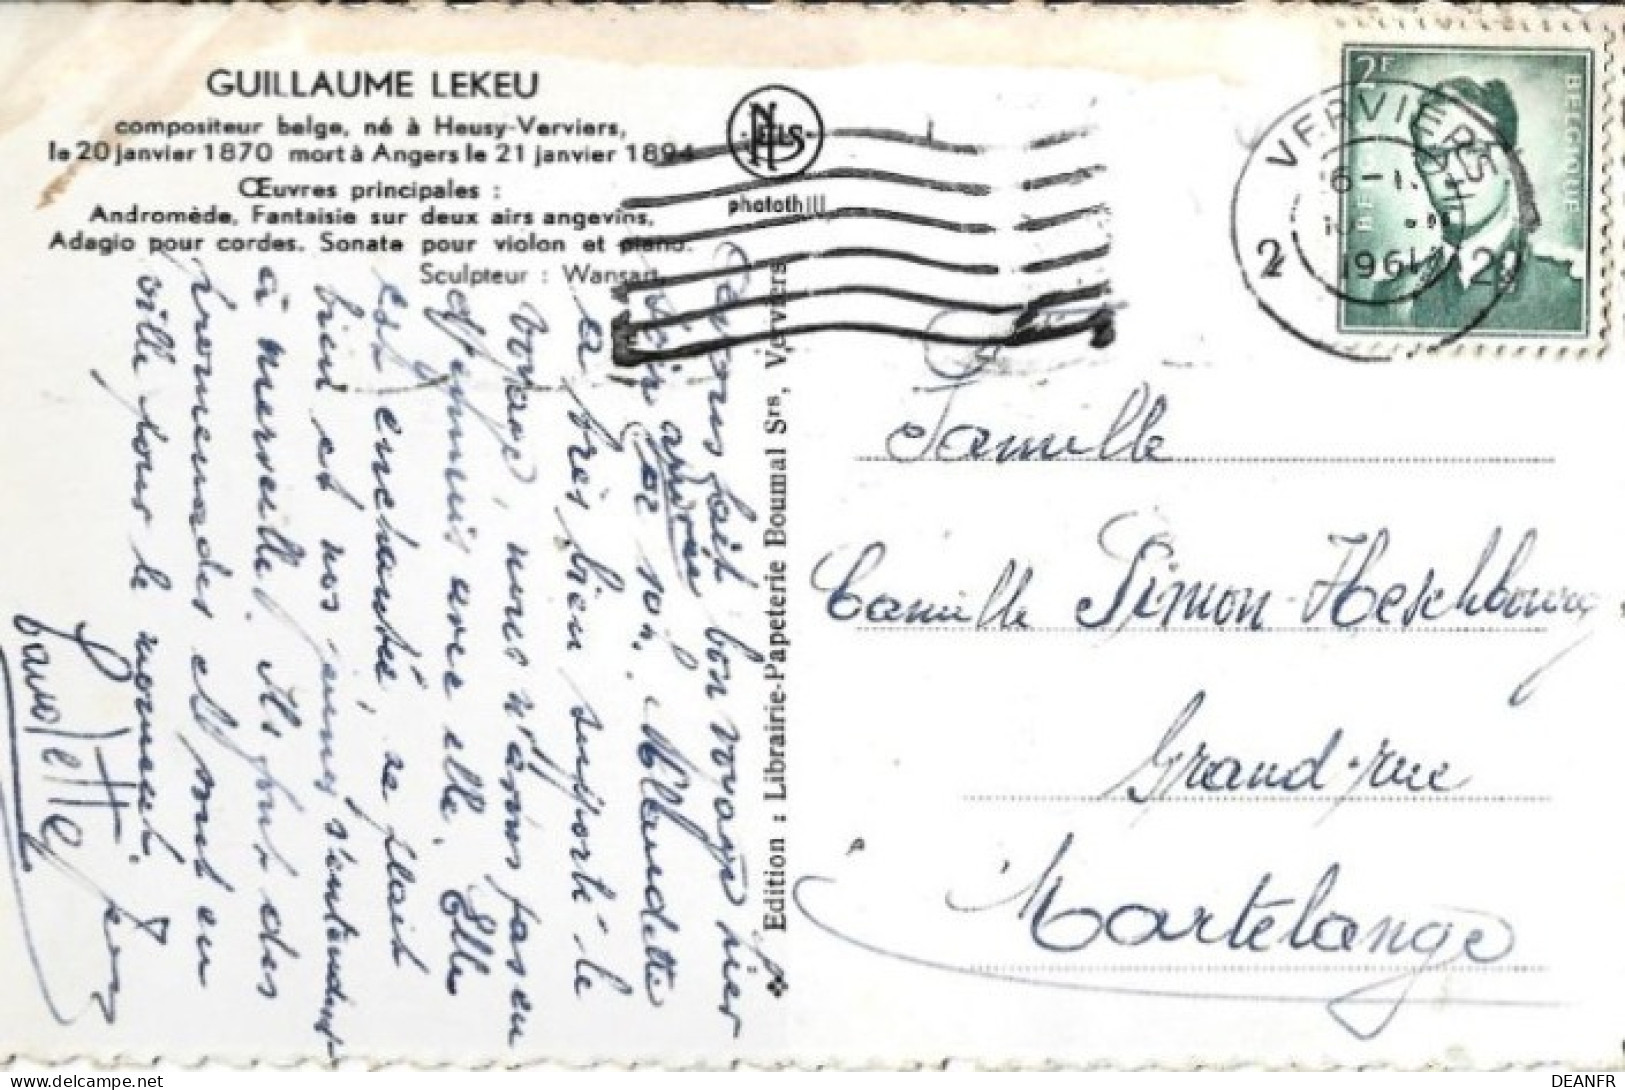 GUILLAUME LEKEU
compositeur belge, né à Heusy-Verviers,
le 20 janvier 1870 mort à Angers le 21 janvier 1894
Œuvres principales :
Andromède, Fantaisie sur deux airs angevins,
Adagio pour cordes. Sonate pour violon et piano.
Sculpteur : Wansart.
NELS
photothill
2F
BELGIQUE
VERVIERS
2 2
1961
Edition : Librairie-Papeterie Boumal Srs, Verviers
fait bon voyage hier
après
Claudette
a très bien supporté le
voyage, nous n'avons pas eu
d'ennuis avec elle. Elle
est enchantée, se plait
bien et nos jeunes s'entendent
à merveille. Ils font des
promenades et sont en
ville pour le moment.
Famille
Camille Simon-Heschbourg
Grand-rue
Martelange
DEANFR